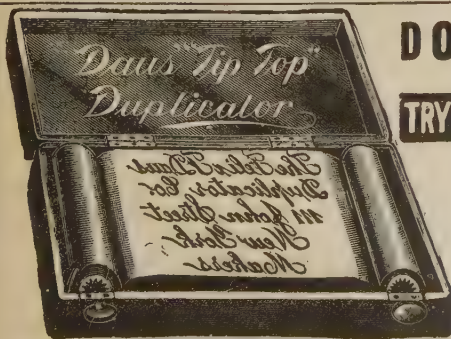 Daus' "Tip Top"
Duplicator
The Felix Daus
Duplicator Co
111 John Street
New York
Makers
DO
TRY